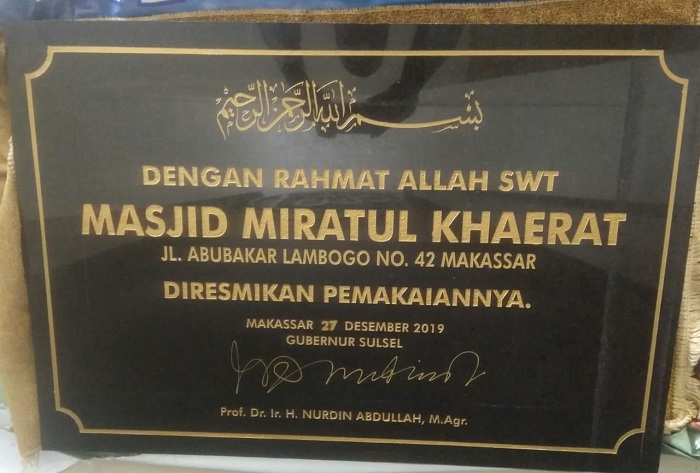 بسم الله الرحمن الرحيم
DENGAN RAHMAT ALLAH SWT
MASJID MIRATUL KHAERAT
JL. ABUBAKAR LAMBOGO NO. 42 MAKASSAR
DIRESMIKAN PEMAKAIANNYA.
MAKASSAR 27 DESEMBER 2019
GUBERNUR SULSEL
Prof. Dr. Ir. H. NURDIN ABDULLAH, M.Agr.